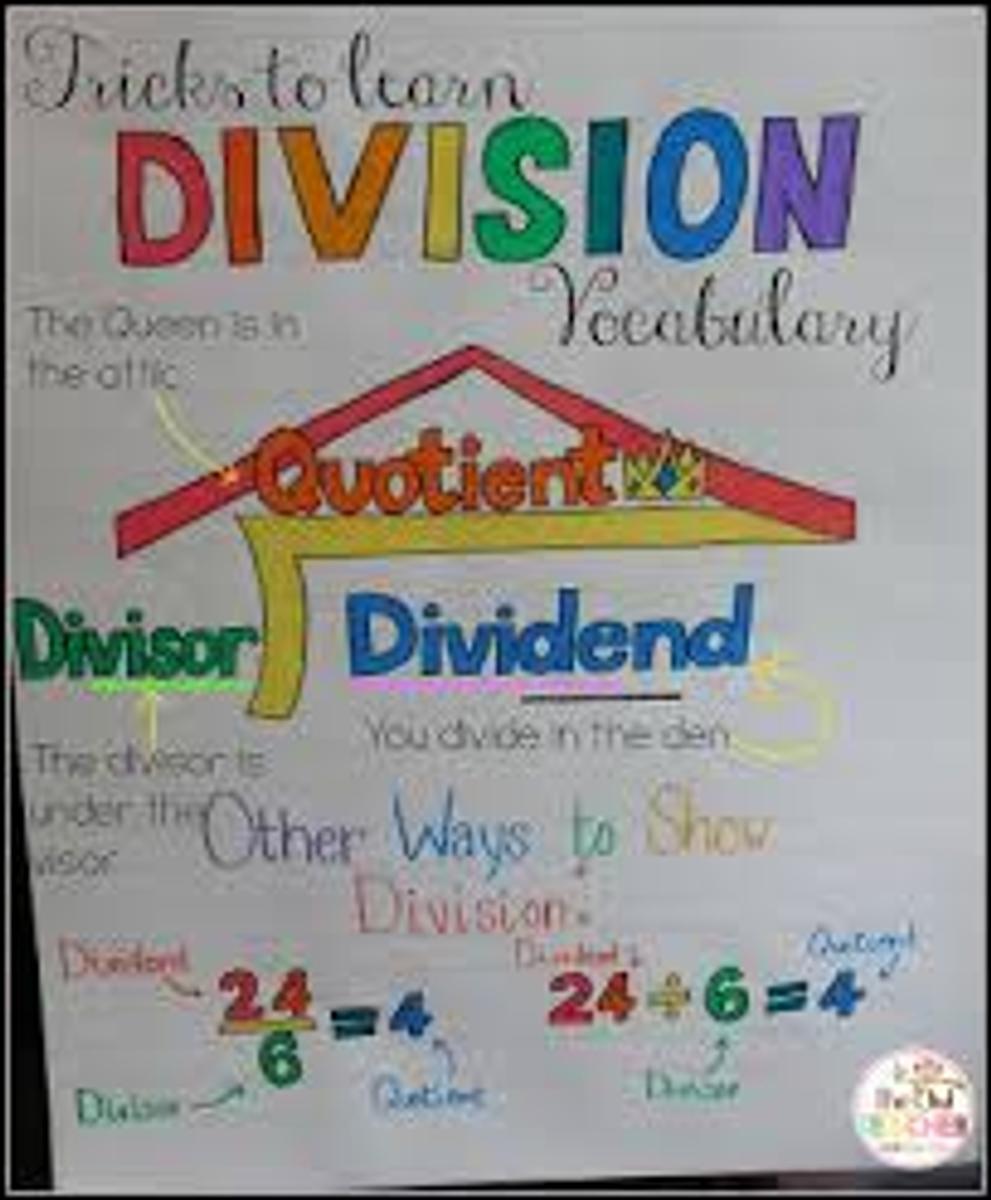 Tricks to learn
DIVISION
Vocabulary
The Queen is in
the attic
Quotient
Divisor
Dividend
You divide in the den
The divisor is
under the
visor
Other Ways to Show
Division:
Dividend
24
6
= 4
Divisor
Quotient
Dividend
Quotient
24 ÷ 6 = 4
Divisor
TEACHER